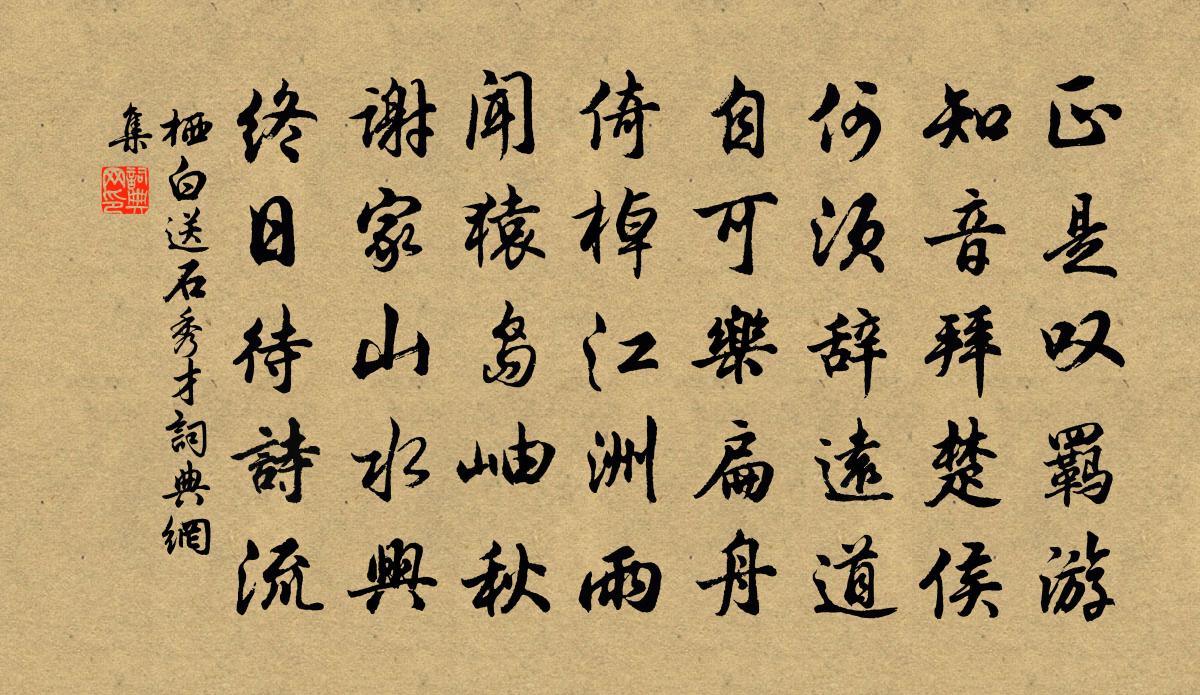 正是叹羁游
知音拜楚侯
何须辞遠道
自可樂扁舟
倚棹江洲雨
闻猿岛岫秋
谢家山水興
终日待詩流
栖白送石秀才詞典網
集
詞典
网印